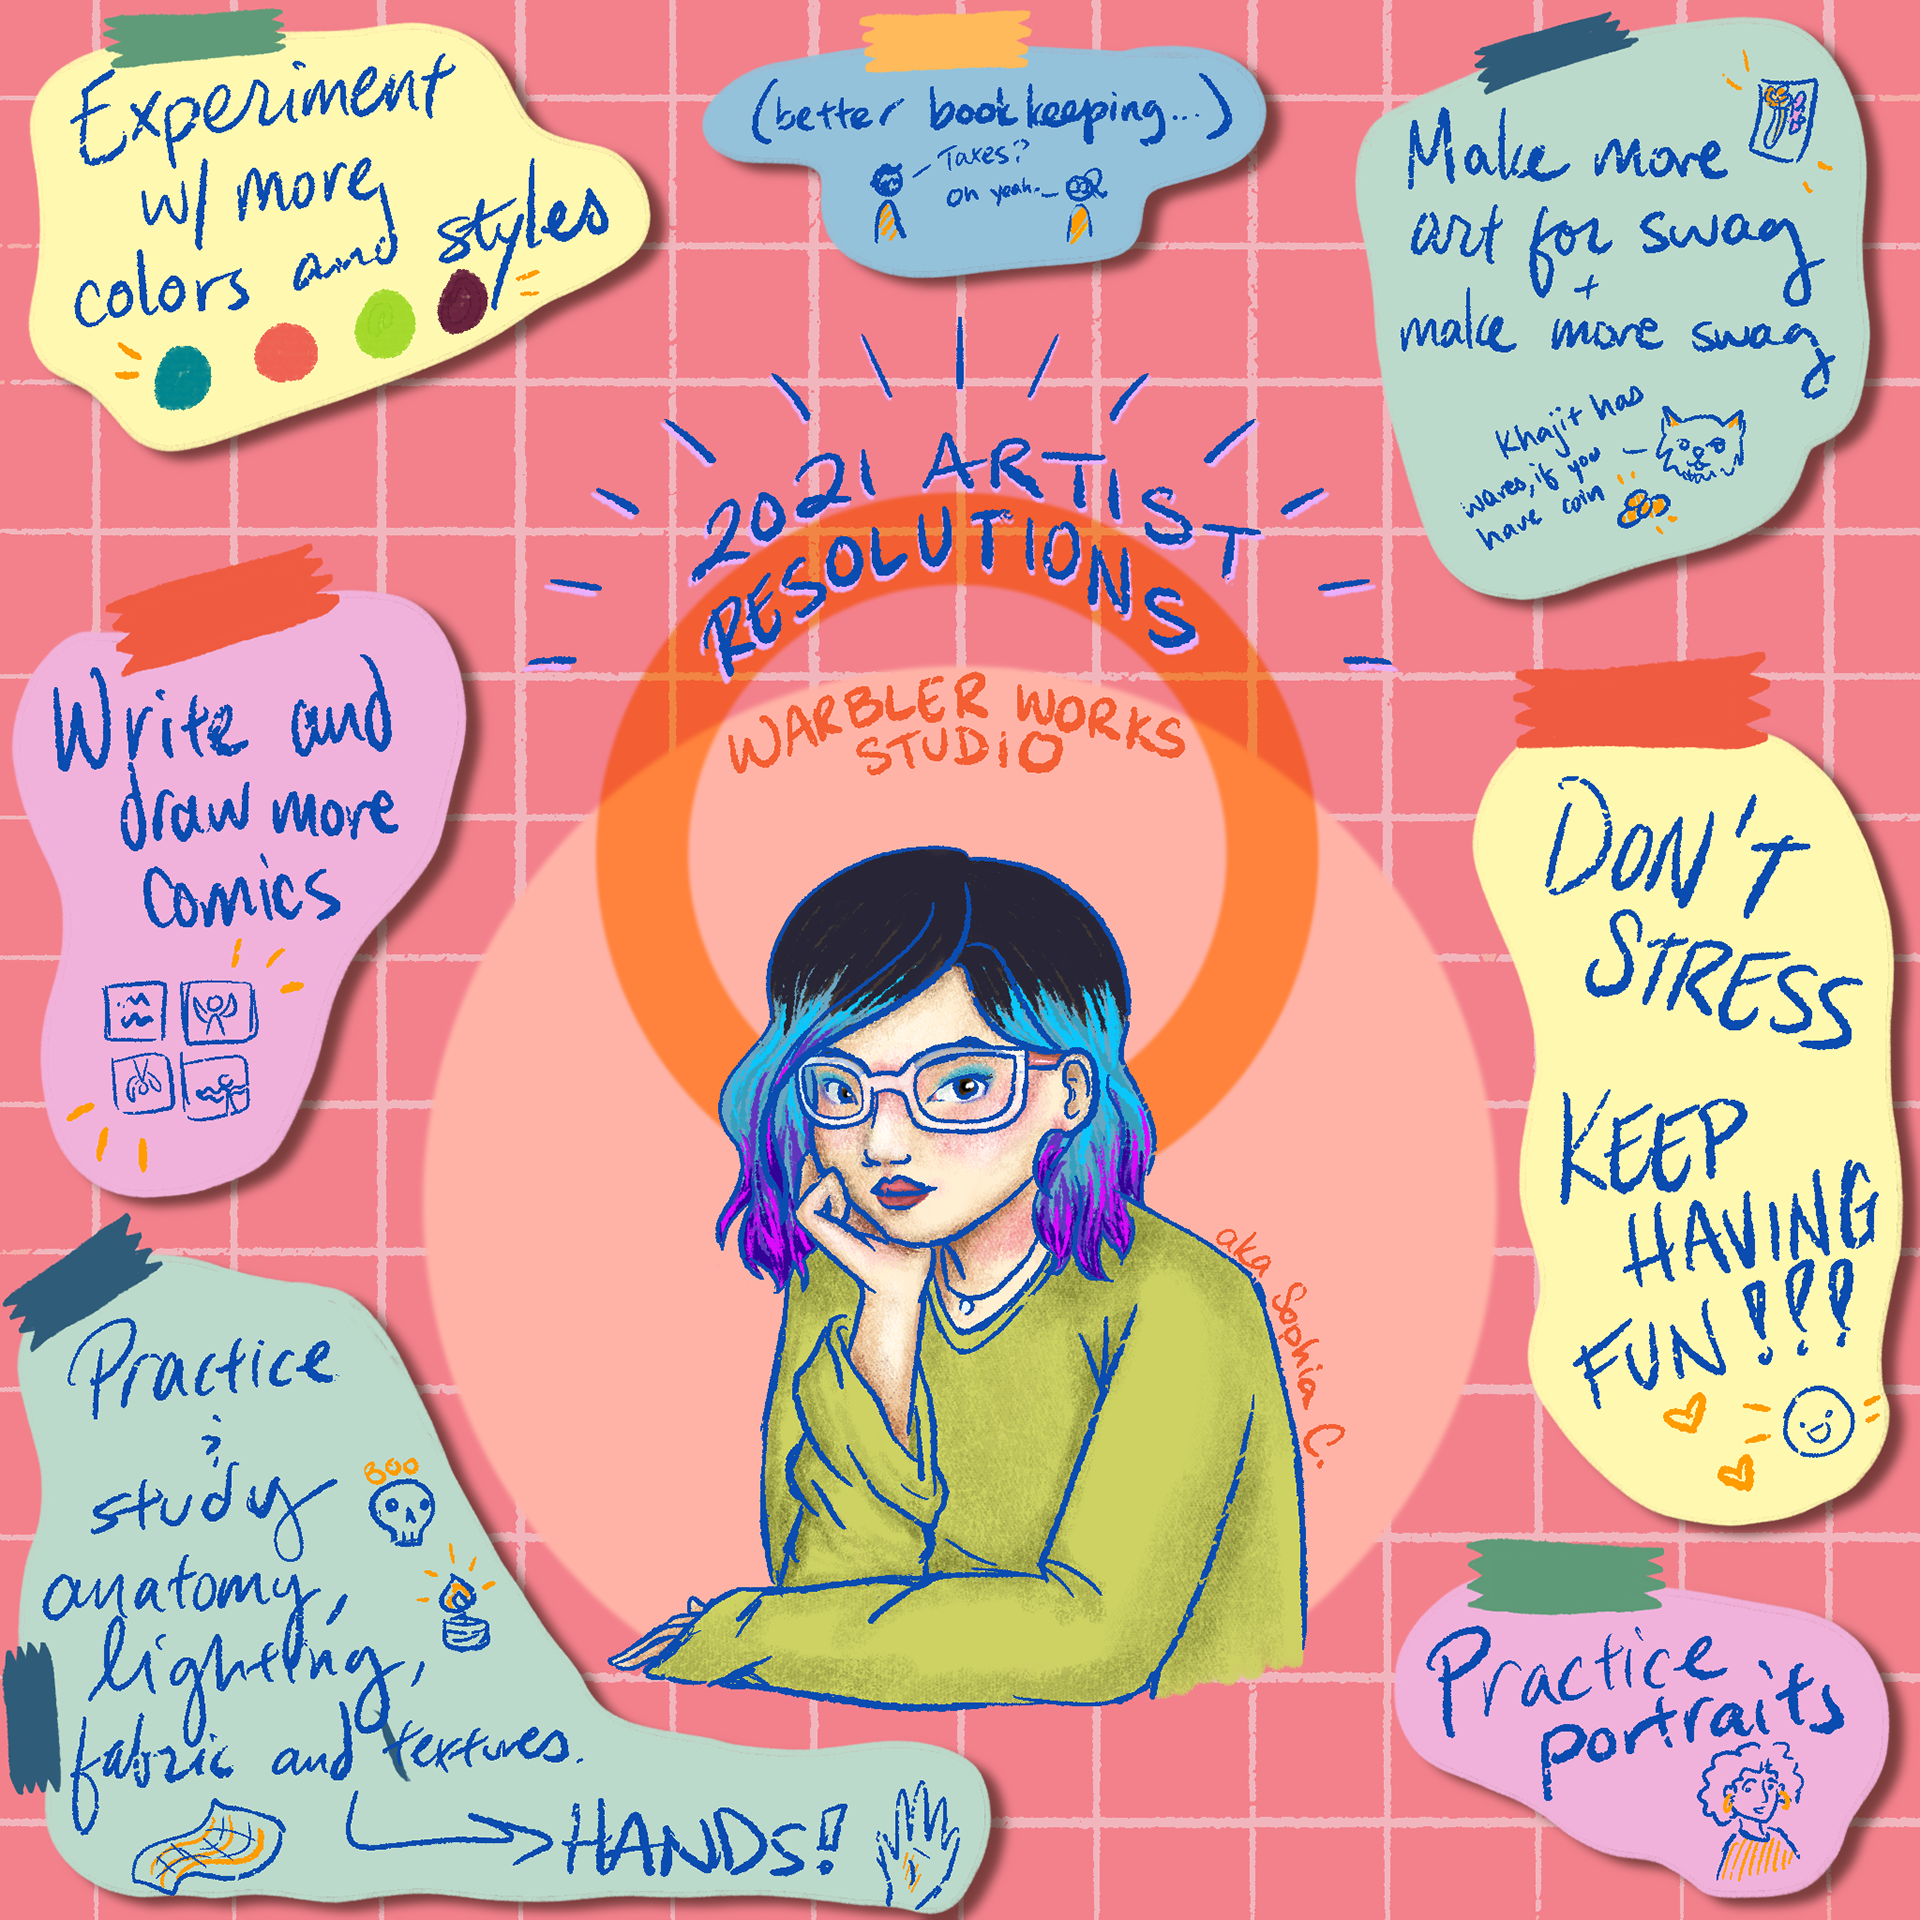 Experiment
w/ more
colors and styles
(better bookkeeping...)
Taxes?
oh yeah..
Make more
art for swag
+
make more swag
Khajit has
wares, if you
have coin
2021 ARTIST
RESOLUTIONS
WARBLER WORKS
STUDIO
aka Sophia C.
Write and
draw more
Comics
DON'T
STRESS
KEEP
HAVING
FUN!!!
Practice
&
study
anatomy,
lighting,
fabric and textures.
HANDS!
BOO
Practice
portraits